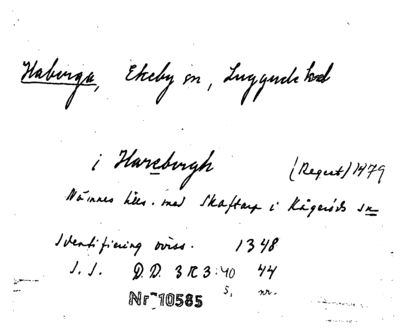 Haburga, Ekeby sn, Luggude hd
i Harebirgh (Regest) 1479
Nämnes tills. med Skaftarp i Kågeröds sn
Identifiering oviss. 1348
S. S. D.D. 3 R 3: 40 44
s. nr.
Nr 10585